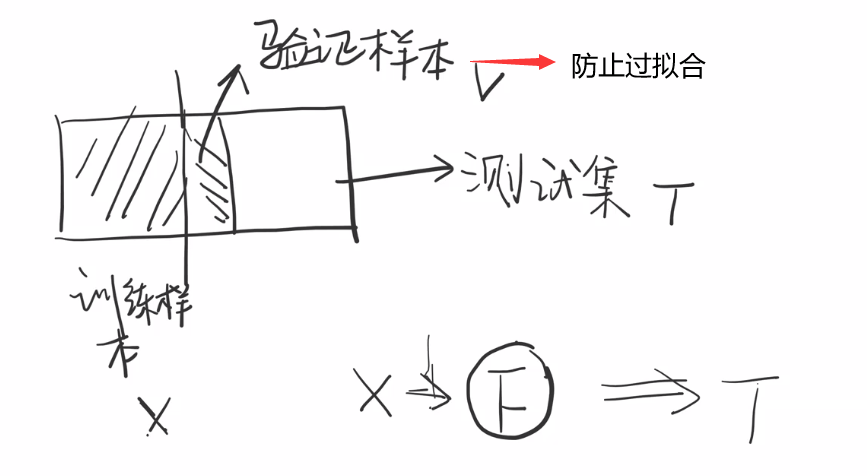 验证样本 V 防止过拟合
测试集 T
训练样
本
X
X F T